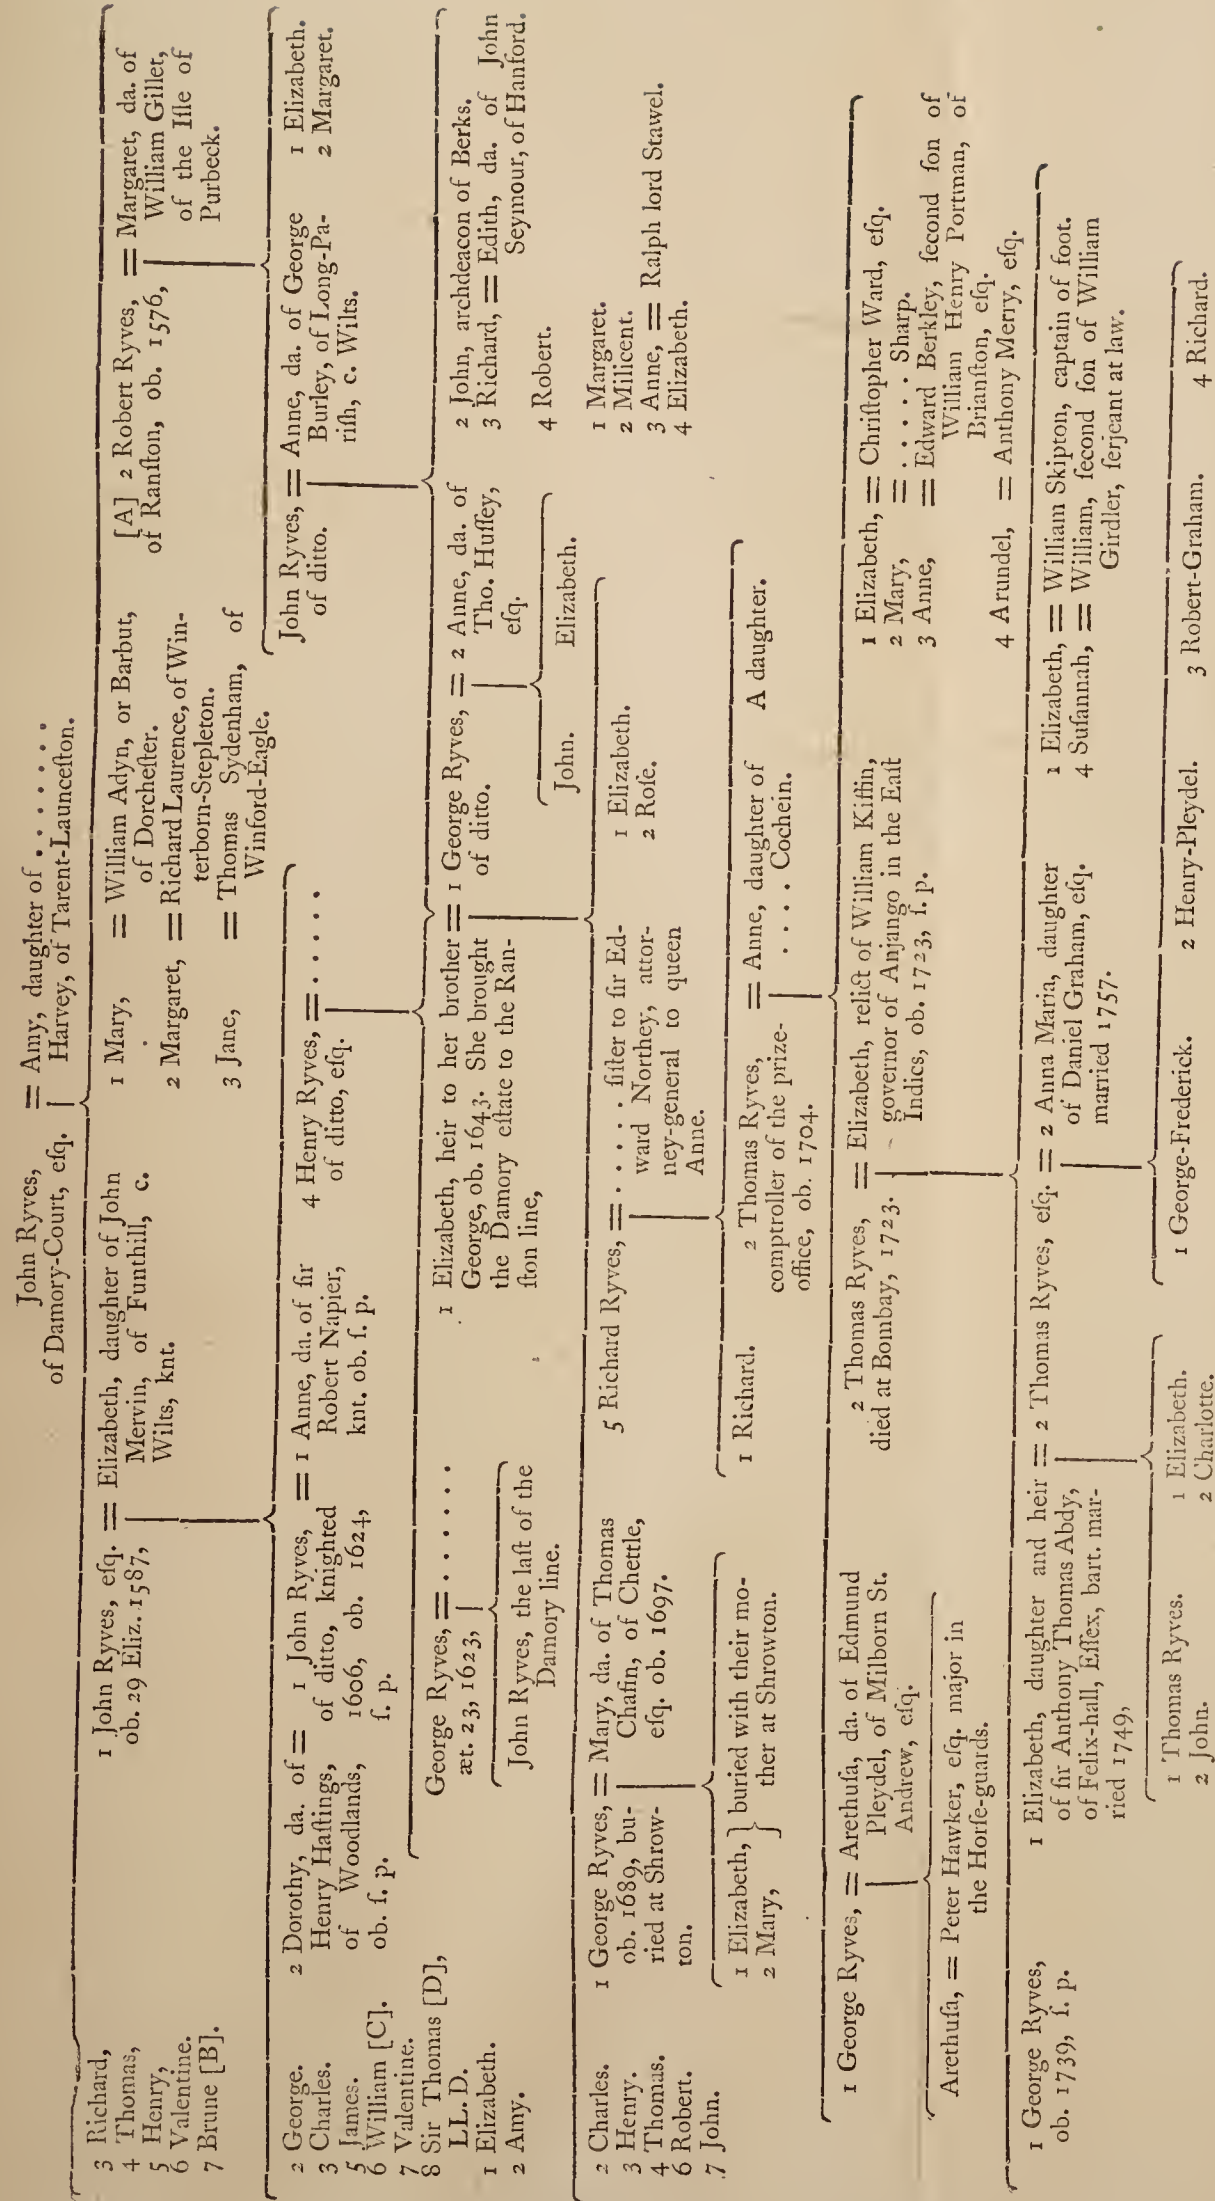 John Ryves,
of Damory-Court, eſq.
= Amy, daughter of . . . . . . .
Harvey, of Tarent-Launceſton.
3 Richard,
4 Thomas,
5 Henry,
6 Valentine.
7 Brune [B].
1 John Ryves, eſq.
ob. 29 Eliz. 1587,
= Elizabeth, daughter of John
Mervin, of Funthill, c.
Wilts, knt.
1 Mary, = William Adyn, or Barbut,
of Dorcheſter.
2 Margaret, = Richard Laurence, of Win-
terborn-Stepleton.
3 Jane, = Thomas Sydenham, of
Winford-Eagle.
[A] 2 Robert Ryves,
of Ranſton, ob. 1576,
= Margaret, da. of
William Gillet,
of the Iſle of
Purbeck.
2 George.
3 Charles.
5 James.
6 William [C].
7 Valentine.
8 Sir Thomas [D],
LL. D.
1 Elizabeth.
2 Amy.
2 Dorothy, da. of
Henry Haſtings,
of Woodlands,
ob. ſ. p.
= 1 John Ryves,
of ditto, knighted
1606, ob. 1624,
ſ. p.
= 1 Anne, da. of ſir
Robert Napier,
knt. ob. ſ. p.
4 Henry Ryves,
of ditto, eſq.
= . . . . . .
John Ryves,
of ditto.
= Anne, da. of George
Burley, of Long-Pa-
riſh, c. Wilts.
1 Elizabeth.
2 Margaret.
George Ryves,
æt. 23, 1623,
= . . . . . .
John Ryves, the laſt of the
Damory line.
1 Elizabeth, heir to her brother
George, ob. 1643. She brought
the Damory eſtate to the Ran-
ſton line,
= 1 George Ryves,
of ditto.
= 2 Anne, da. of
Tho. Huſſey,
eſq.
John.
Elizabeth.
2 John, archdeacon of Berks.
3 Richard, = Edith, da. of John
Seymour, of Hanford.
4 Robert.
1 Margaret.
2 Milicent.
3 Anne, = Ralph lord Stawel.
4 Elizabeth.
2 Charles.
3 Henry.
4 Thomas.
6 Robert.
7 John.
1 George Ryves,
ob. 1689, bu-
ried at Shrow-
ton.
= Mary, da. of Thomas
Chafin, of Chettle,
eſq. ob. 1697.
1 Elizabeth,
2 Mary,
} buried with their mo-
ther at Shrowton.
5 Richard Ryves,
= . . . . . ſiſter to ſir Ed-
ward Northey, attor-
ney-general to queen
Anne.
1 Elizabeth.
2 Roſe.
1 Richard.
2 Thomas Ryves,
comptroller of the prize-
office, ob. 1704.
= Anne, daughter of
. . . . Cochein.
A daughter.
1 George Ryves,
= Arethuſa, da. of Edmund
Pleydel, of Milborn St.
Andrew, eſq.
Arethuſa, = Peter Hawker, eſq. major in
the Horſe-guards.
2 Thomas Ryves,
died at Bombay, 1723.
= Elizabeth, relict of William Kiffin,
governor of Anjango in the Eaſt
Indics, ob. 1723, ſ. p.
1 Elizabeth, = Chriſtopher Ward, eſq.
2 Mary, = . . . . . Sharp.
3 Anne, = Edward Berkley, ſecond ſon of
William Henry Portman, of
Brianſton, eſq.
4 Arundel, = Anthony Merry, eſq.
1 George Ryves,
ob. 1739, ſ. p.
1 Elizabeth, daughter and heir
of ſir Anthony Thomas Abdy,
of Felix-hall, Eſſex, bart. mar-
ried 1749,
= 2 Thomas Ryves, eſq.
= 2 Anna Maria, daughter
of Daniel Graham, eſq.
married 1757.
1 Elizabeth, = William Skipton, captain of foot.
4 Suſannah, = William, ſecond ſon of William
Girdler, ſerjeant at law.
1 Thomas Ryves.
2 John.
1 Elizabeth.
2 Charlotte.
1 George-Frederick.
2 Henry-Pleydel.
3 Robert-Graham.
4 Richard.